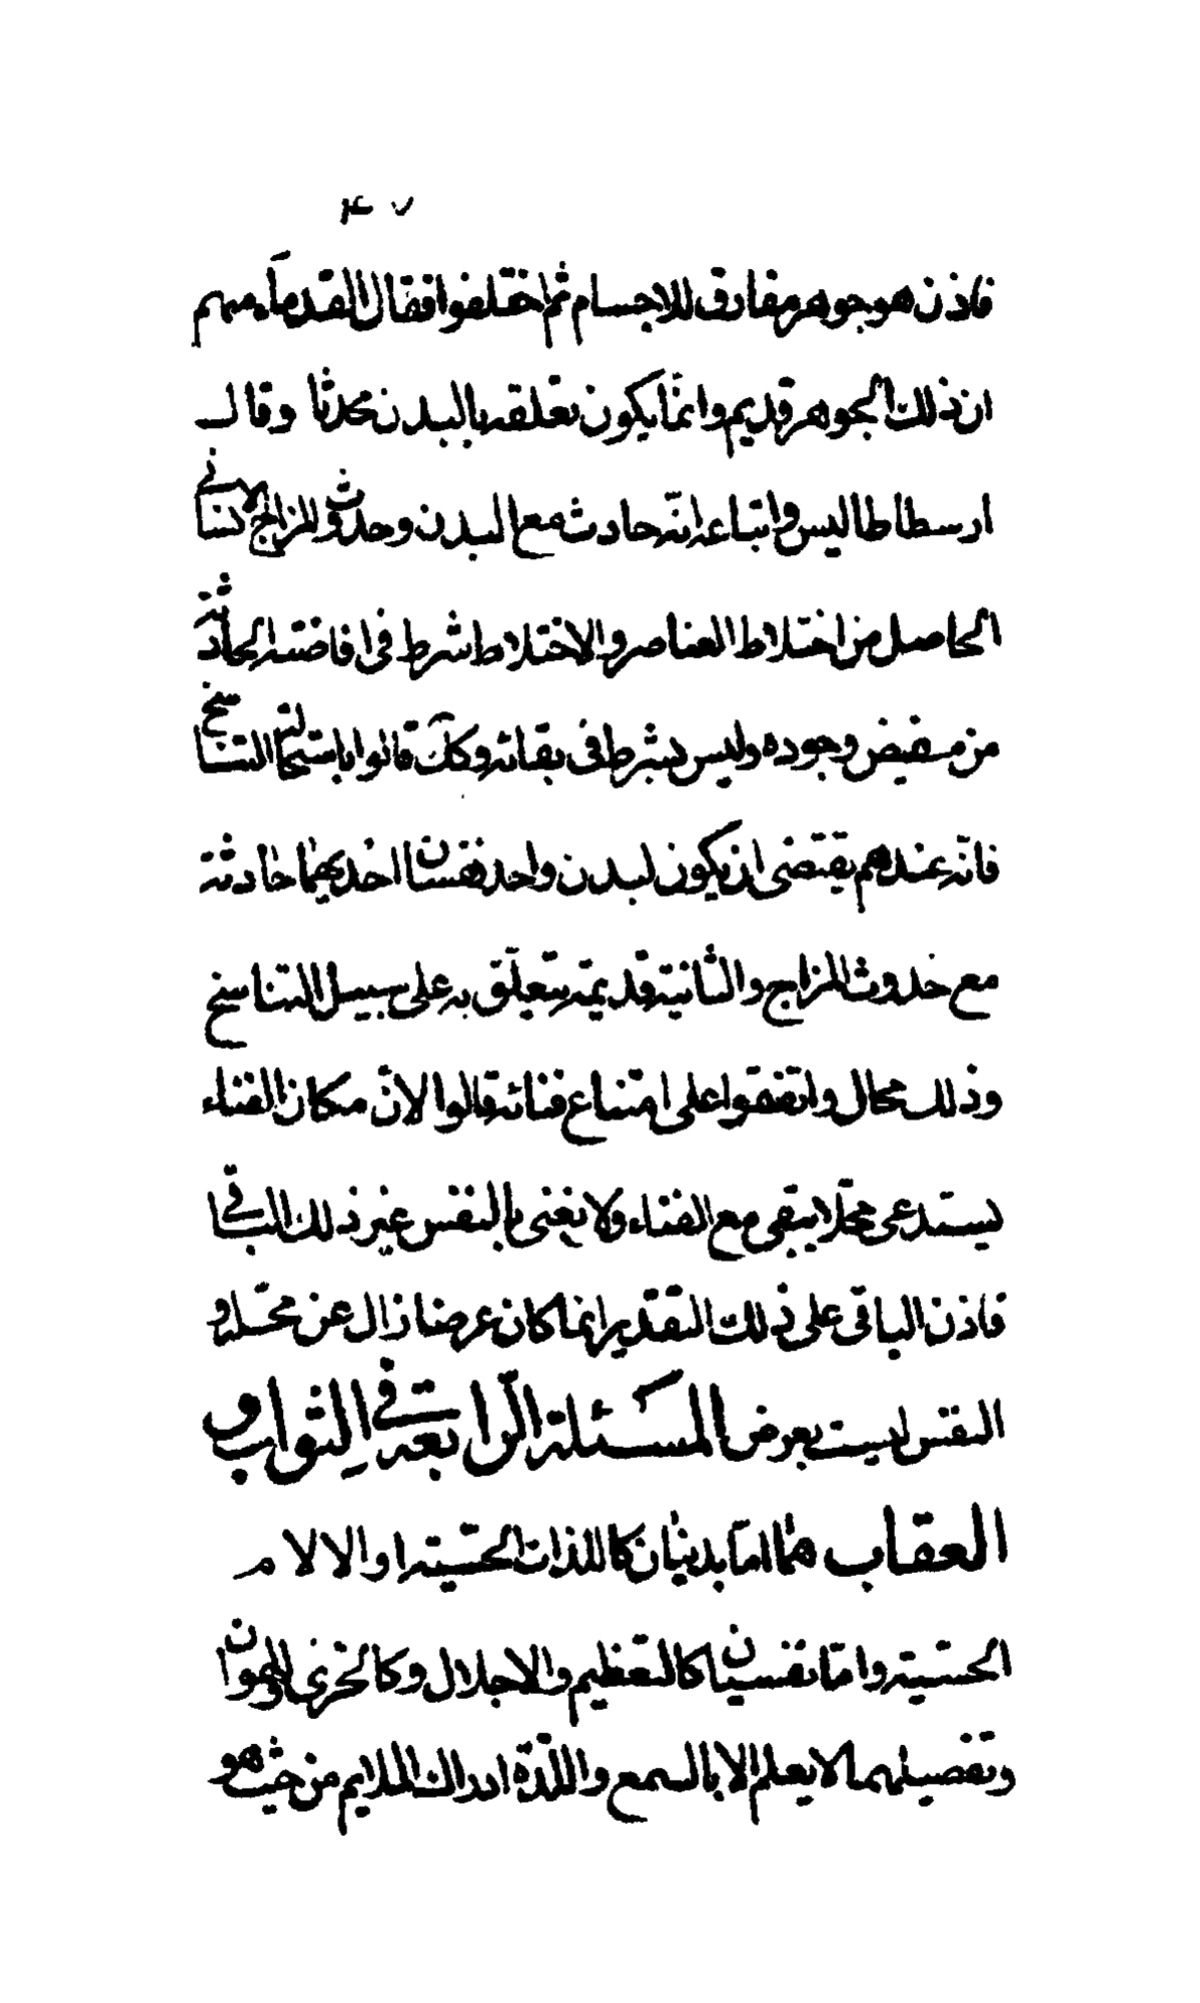 ۴۷
فاذن هو جوهر مفارق للاجسام ثم اختلفوا فقال القدماء منهم
ان ذلك الجوهر قديم وانما يكون تعلقه بالبدن محدثا وقال
ارسطاطاليس واتباعه انه حادث مع البدن وحدوث المزاج الانسانى
الحاصل من اختلاط العناصر والاختلاط شرط فى افاضته الحادثة
من مفيض وجوده وليس بشرط فى بقائه وكك قالوا باستحالة التناسخ
فانه عندهم يقتضى ان يكون لبدن واحد نفسان احديهما حادثة
مع حدوث المزاج والثانية قديمة يتعلق به على سبيل التناسخ
وذلك محال واتفقوا على امتناع فنائه قالوا لان مكان الفناء
يستدعى محلا يبقى مع الفناء ولا نعنى بالنفس غير ذلك الباقى
فاذن الباقى على ذلك التقدير انما كان عرضا زال عن محله و
النفس ليست بعرض المسئلة الرابعة فى الثواب و
العقاب هما اما بدنيان كاللذات الحسية او الالام
الحسية واما نفسيان كالتعظيم والاجلال وكالخزى والهوان
وتفصيلهما لا يعلم الا بالسمع واللذة ادراك الملايم من حيث هو